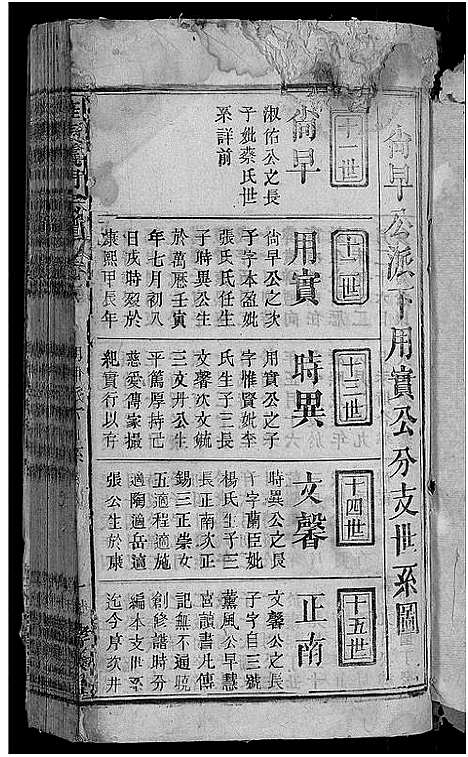 尙早公派下用實公分支世系圖
十一世
尙早
淑佑公之長
子妣蔡氏世
系詳前
十二世
用實
尙早公之次
子字本盈妣
張氏氏任生
子時異公生
於萬厯壬寅
年七月初八
日戌時歿於
康熙甲辰年
十三世
時異
用實公之子
字惟賢妣李
氏生子三長
文馨次文毓
三文丹公生
平篤厚持己
慈愛傳家撮
紀實行以方
十四世
文馨
時異公之長
子字蘭臣妣
楊氏生子三
長正南次正
錫三正崇女
五適程適施
適陶適岳適
張公生於康
十五世
正南
文馨公之長
子字自三號
薰風公早慧
喜讀書凡傳
記無不通曉
創修譜時分
編本支世系
迄今序次井